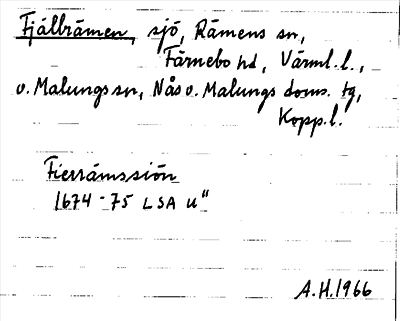 Fjälrämen, sjö, Rämens sn,
Färnebo hd, Värml. l.,
o. Malungs sn, Nås o. Malungs doms. tg,
Kopp. l.
Fierrämssiön
1674-75 LSA U"
A.H. 1966